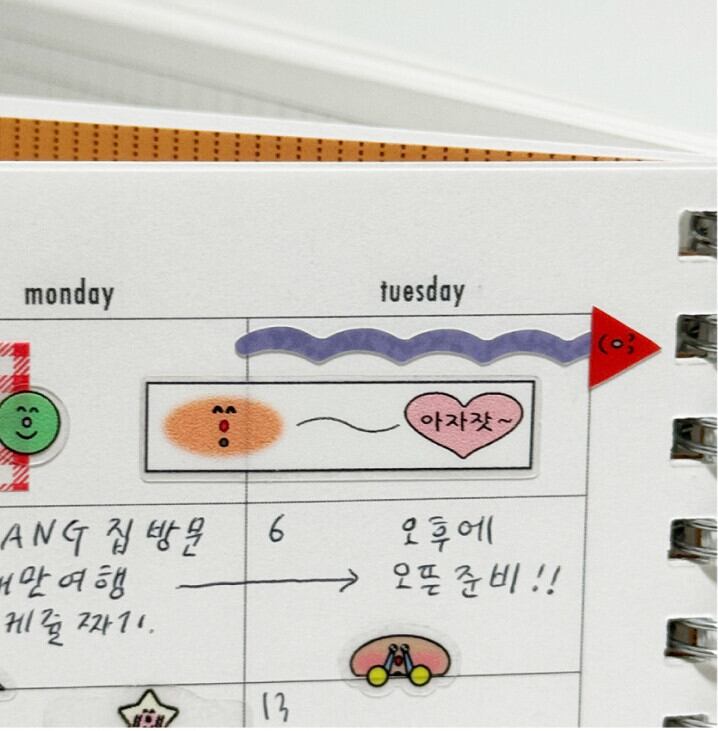 monday
tuesday
아자잣~
ANG 집 방문
만여행
케줄 짜기.
6
오후에
오픈 준비!!
13